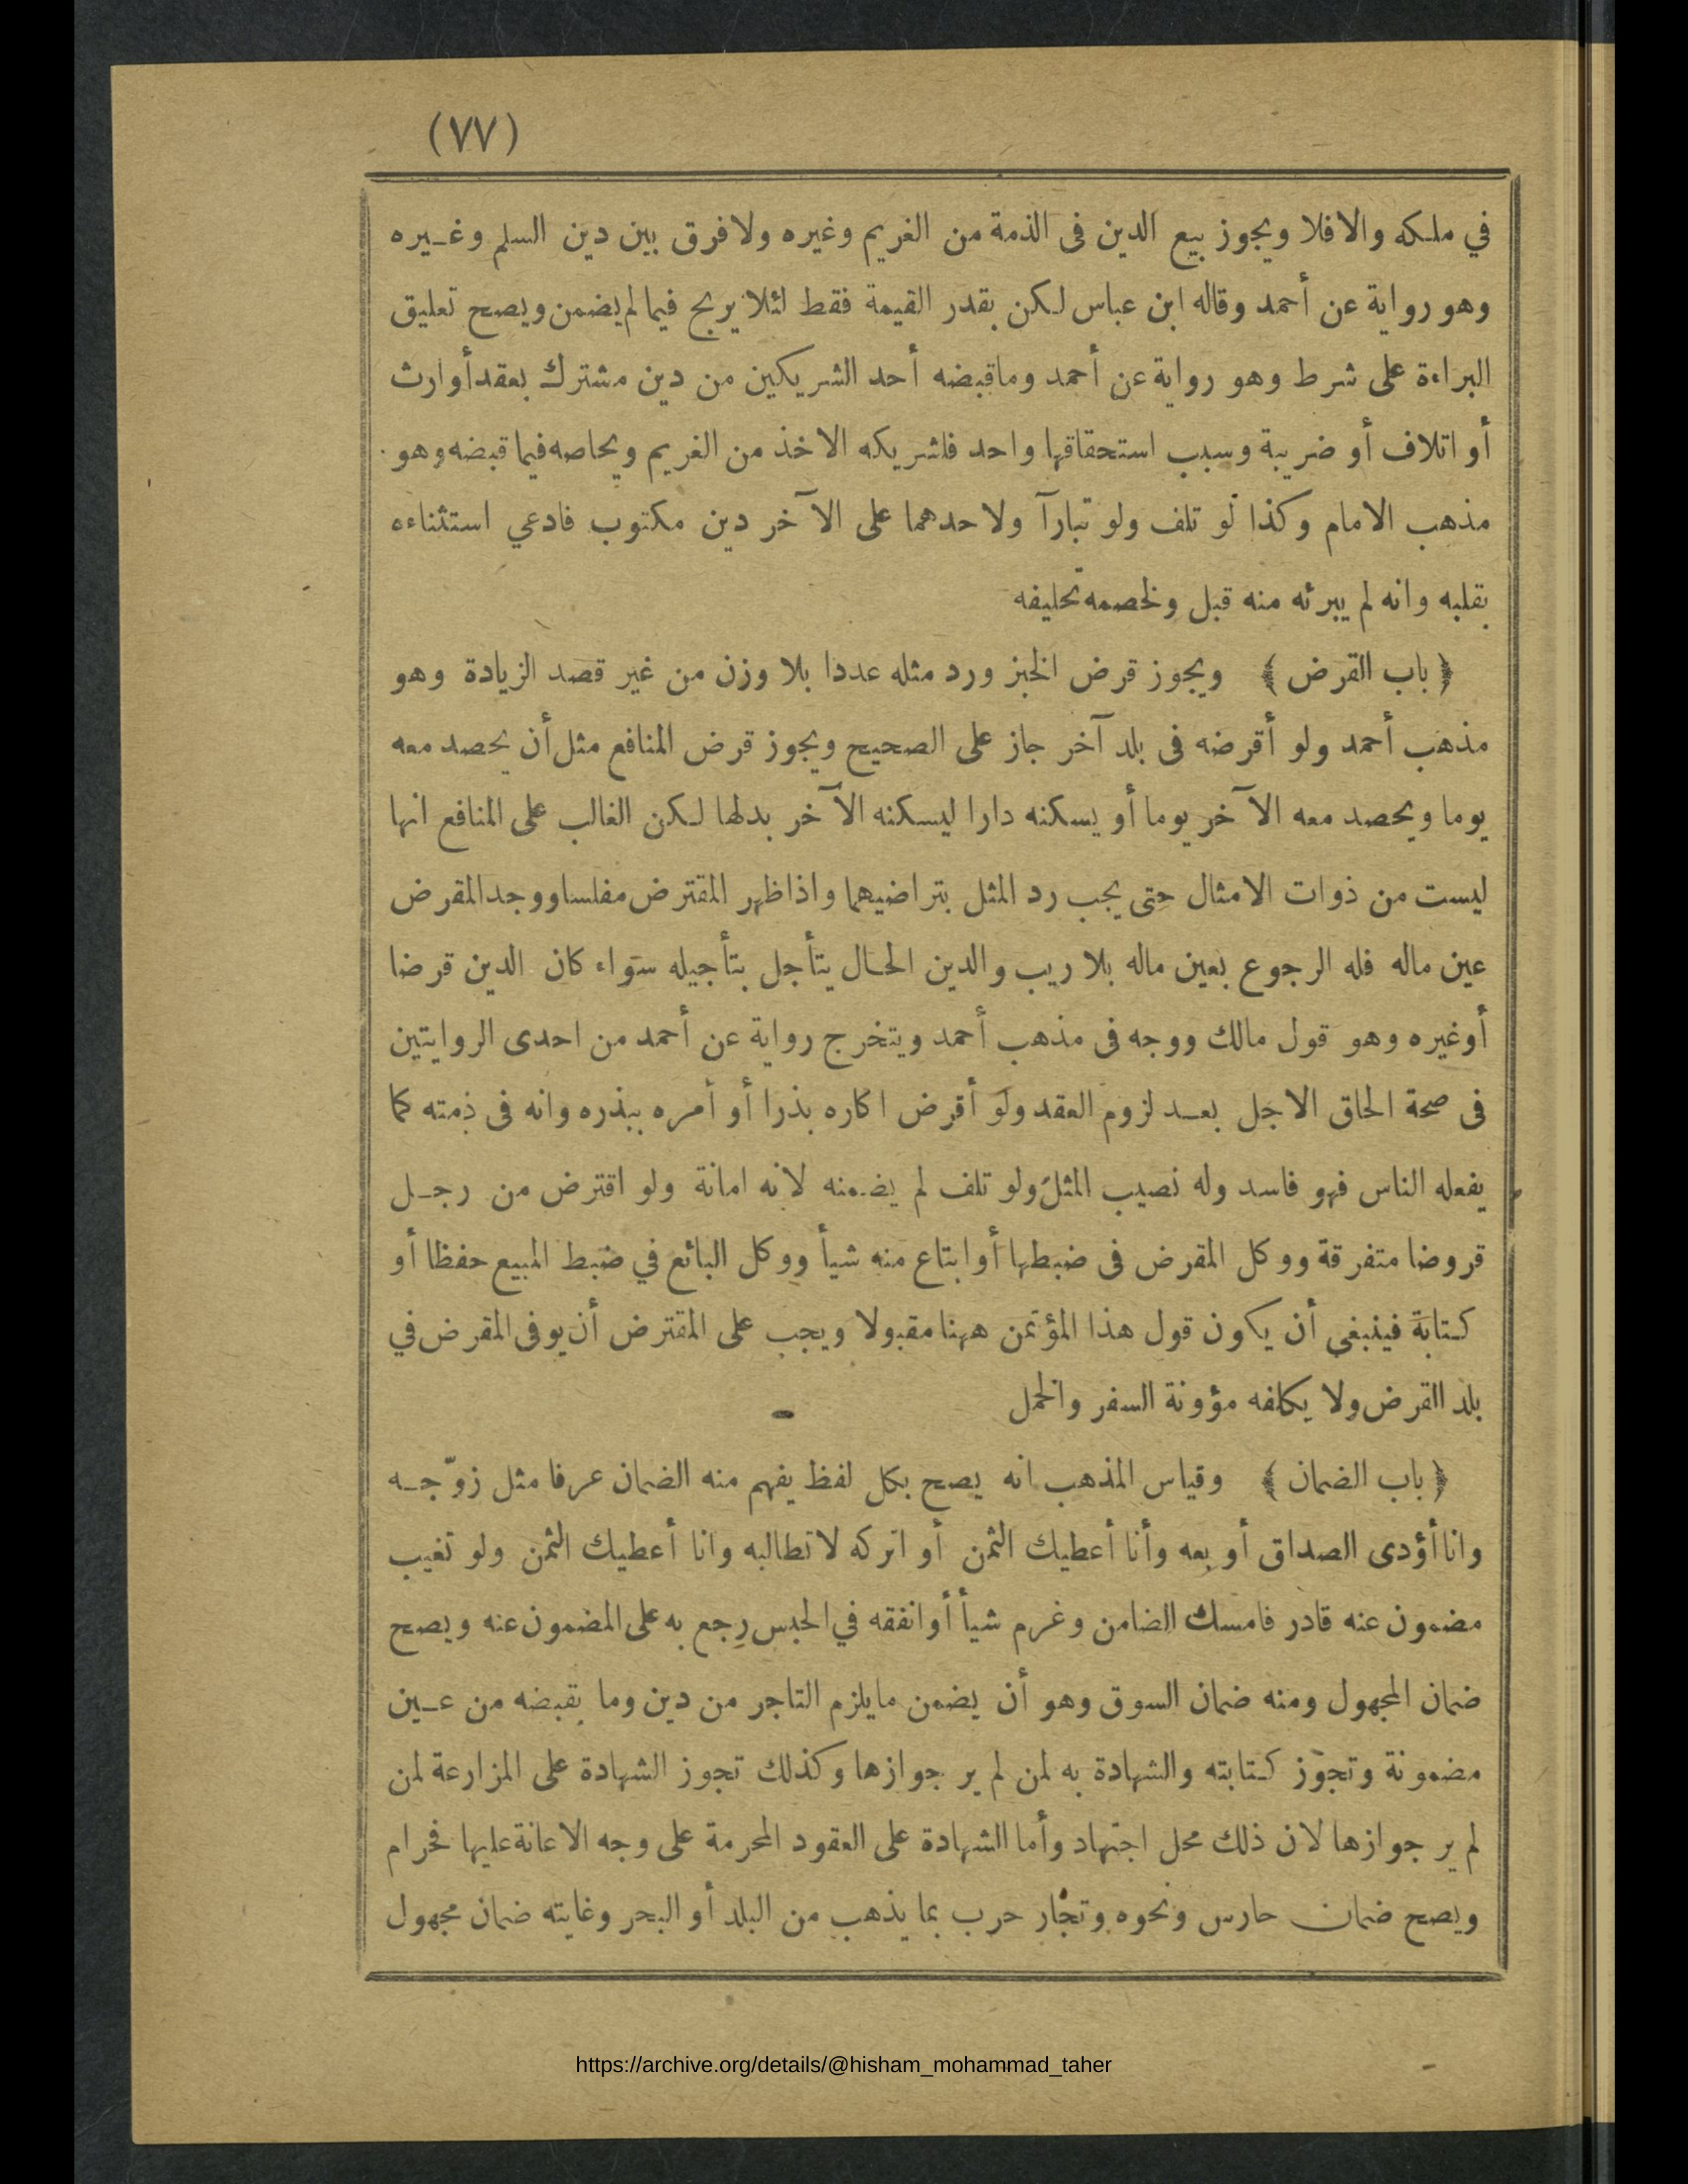 (٧٧)
في ملكه والافلا ويجوز بيع الدين فى الذمة من الغريم وغيره ولا فرق بين دين السلم وغيره
وهو رواية عن أحمد وقاله ابن عباس لكن بقدر القيمة فقط لئلا يربح فيما لم يضمن ويصح تعليق
البراءة على شرط وهو رواية عن أحمد وماقبضه أحد الشريكين من دين مشترك بعقد أوارث
أو اتلاف أو ضريبة وسبب استحقاقها واحد فلشريكه الاخذ من الغريم ويحاصه فيما قبضه وهو
مذهب الامام وكذا لو تلف ولو تبارآ ولاحدهما على الآخر دين مكتوب فادعي استثناءه
بقلبه وانه لم يبرئه منه قبل ولخصمه تحليفه
﴿ باب القرض ﴾ ويجوز قرض الخبز ورد مثله عددا بلا وزن من غير قصد الزيادة وهو
مذهب أحمد ولو أقرضه فى بلد آخر جاز على الصحيح ويجوز قرض المنافع مثل أن يحصد معه
يوما ويحصد معه الآخر يوما أو يسكنه دارا ليسكنه الآخر بدلها لكن الغالب على المنافع انها
ليست من ذوات الامثال حتى يجب رد المثل بتراضيهما واذا ظهر المقترض مفلسا ووجد المقرض
عين ماله فله الرجوع بعين ماله بلا ريب والدين الحال يتأجل بتأجيله سواء كان الدين قرضا
أوغيره وهو قول مالك ووجه فى مذهب أحمد ويتخرج رواية عن أحمد من احدى الروايتين
فى صحة الحاق الاجل بعد لزوم العقد ولو أقرض اكاره بذرا أو أمره ببذره وانه فى ذمته كما
يفعله الناس فهو فاسد وله نصيب المثل ولو تلف لم يضمنه لانه امانة ولو اقترض من رجل
قروضا متفرقة ووكل المقرض فى ضبطها أوابتاع منه شيأ ووكل البائع في ضبط المبيع حفظا أو
كتابة فينبغي أن يكون قول هذا المؤتمن ههنا مقبولا ويجب على المقترض أن يوفى المقرض في
بلد القرض ولا يكلفه مؤونة السفر والحمل
﴿ باب الضمان ﴾ وقياس المذهب انه يصح بكل لفظ يفهم منه الضمان عرفا مثل زوّجه
وانا أؤدى الصداق أو بعه وأنا أعطيك الثمن أو اتركه لا تطالبه وانا أعطيك الثمن ولو تغيب
مضمون عنه قادر فامسك الضامن وغرم شيأ أوانفقه في الحبس رجع به على المضمون عنه ويصح
ضمان المجهول ومنه ضمان السوق وهو أن يضمن مايلزم التاجر من دين وما يقبضه من عين
مضمونة وتجوز كتابته والشهادة به لمن لم ير جوازها وكذلك تجوز الشهادة على المزارعة لمن
لم ير جوازها لان ذلك محل اجتهاد وأما الشهادة على العقود المحرمة على وجه الاعانة عليها فحرام
ويصح ضمان حارس ونحوه وتجار حرب بما يذهب من البلد أو البحر وغايته ضمان مجهول
https://archive.org/details/@hisham_mohammad_taher